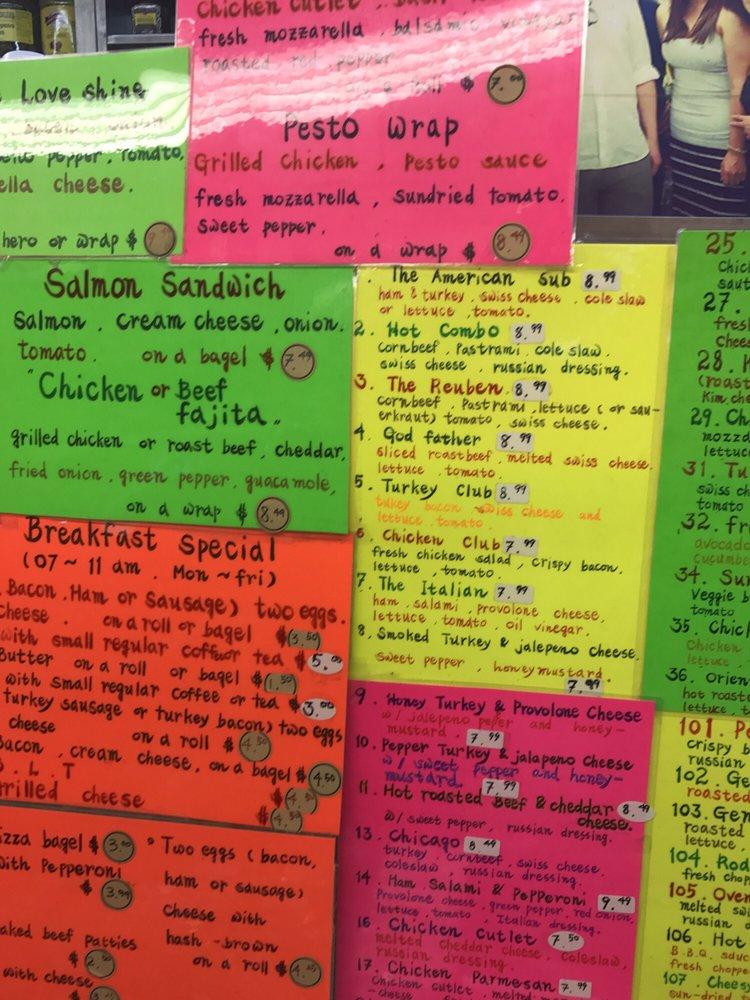 Chicken Cutlet
fresh mozzarella, balsamic vinegar
roasted red pepper
$ 7.00
Pesto Wrap
Grilled Chicken, Pesto sauce
fresh mozzarella, sundried tomato.
sweet pepper.
on a wrap $ 8.49
Love shine
pepper. Tomato,
ella cheese.
hero or wrap $
Salmon Sandwich
Salmon. cream cheese, onion.
tomato. on a bagel $ 7.49
"Chicken or Beef
fajita"
grilled chicken or roast beef, cheddar,
fried onion. green pepper. guacamole,
on a wrap $ 8.49
Breakfast Special
(07 ~ 11 am. Mon ~ fri)
Bacon. Ham or Sausage) two eggs.
Cheese. on a roll or bagel $ 3.50
with small regular coffee or tea $ 5.00
Butter on a roll or bagel $ 1.50
with small regular coffee or tea $ 3.00
turkey sausage or turkey bacon) two eggs
cheese on a roll $ 4.50
Bacon, cream cheese, on a bagel $ 4.50
B. L. T $ 4.50
Grilled cheese $ 4.50
izza bagel $ 3.00
with Pepperoni
$ 3.99
aked beef patties
$ 2.50
with cheese
Two eggs (bacon,
ham or sausage)
Cheese with
hash-brown
on a roll $
. The American Sub 8.99
ham & turkey. swiss cheese. cole slaw
or lettuce. tomato.
2. Hot Combo 8.99
cornbeef. Pastrami. cole slaw.
swiss cheese, russian dressing.
3. The Reuben. 8.99
cornbeef, Pastrami, lettuce (or sau-
erkraut) tomato, swiss cheese.
4. God father 8.99
sliced roastbeef, melted swiss cheese.
lettuce. tomato.
5. Turkey Club 8.99
turkey bacon swiss cheese and
lettuce tomato.
6. Chicken Club 7.99
fresh chicken salad, crispy bacon.
lettuce, tomato.
7. The Italian 7.99
ham. salami. provolone cheese,
lettuce. tomato. oil vinegar.
8. Smoked Turkey & jalepeno cheese.
sweet pepper, honeymustard.
7.99
9. Honey Turkey & Provolone Cheese
w/ jalepeno peper and honey-
mustard. 7.99
10. Pepper Turkey & jalapeno Cheese
w/ sweet pepper and honey-
mustard. 7.99
11. Hot roasted Beef & cheddar 8.49
cheese.
w/ sweet pepper, russian dressing.
13. Chicago 8.49
turkey, cornbeef. swiss cheese.
coleslaw, russian dressing.
14. Ham Salami & Pepperoni 9.49
Provolone cheese, green pepper, red onion,
lettuce. tomato, Italian dressing.
16. Chicken Cutlet 7.50
melted cheddar cheese, coleslaw,
russian dressing.
17. Chicken Parmesan 7.99
Chicken cutlet, melted
cheese
25.
Chic
saut
27.
fres
Chees
28.
(roas
Kim che
29. Ch
mozza
lettuc
31. Tu
swiss ch
tomato
32. fr
avocado
cucumbe
34. Su
Veggie b
tomato
35. Chic
Chicken
lettuce
36. Orien
hot roast
lettuce, t
101. P
crispy b
russian
102. Ge
roasted
103. Gen
roasted
lettuce.
104. Rod
fresh chop
105 Oven
melted sw
russian
106. Hot
B.B.Q. sauc
fresh chopp
107 Chees
sun-dried